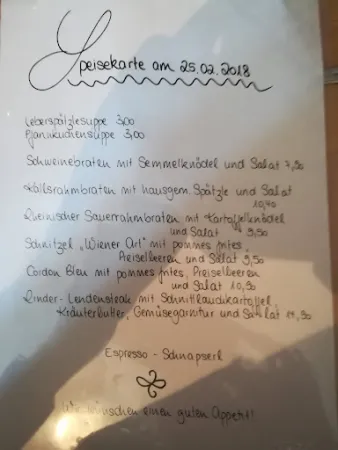 Speisekarte am 25.02.2018
Leberspätzlesuppe 3,00
Pfannkuchensuppe 3,00
Schweinebraten mit Semmelknödel und Salat 7,90
Kalbsrahmbraten mit hausgem. Spätzle und Salat
10,40
Rheinischer Sauerrahmbraten mit Kartoffelknödel
und Salat 9,50
Schnitzel „Wiener Art" mit pommes frites,
Preiselbeeren und Salat 9,50
Cordon Bleu mit pommes frites, Preiselbeeren
und Salat 10,50
Rinder-Lendensteak mit Schnittlauchkartoffel,
Kräuterbutter, Gemüsegarnitur und Salat
Espresso - Schnapserl
Wir wünschen einen guten Appetit!